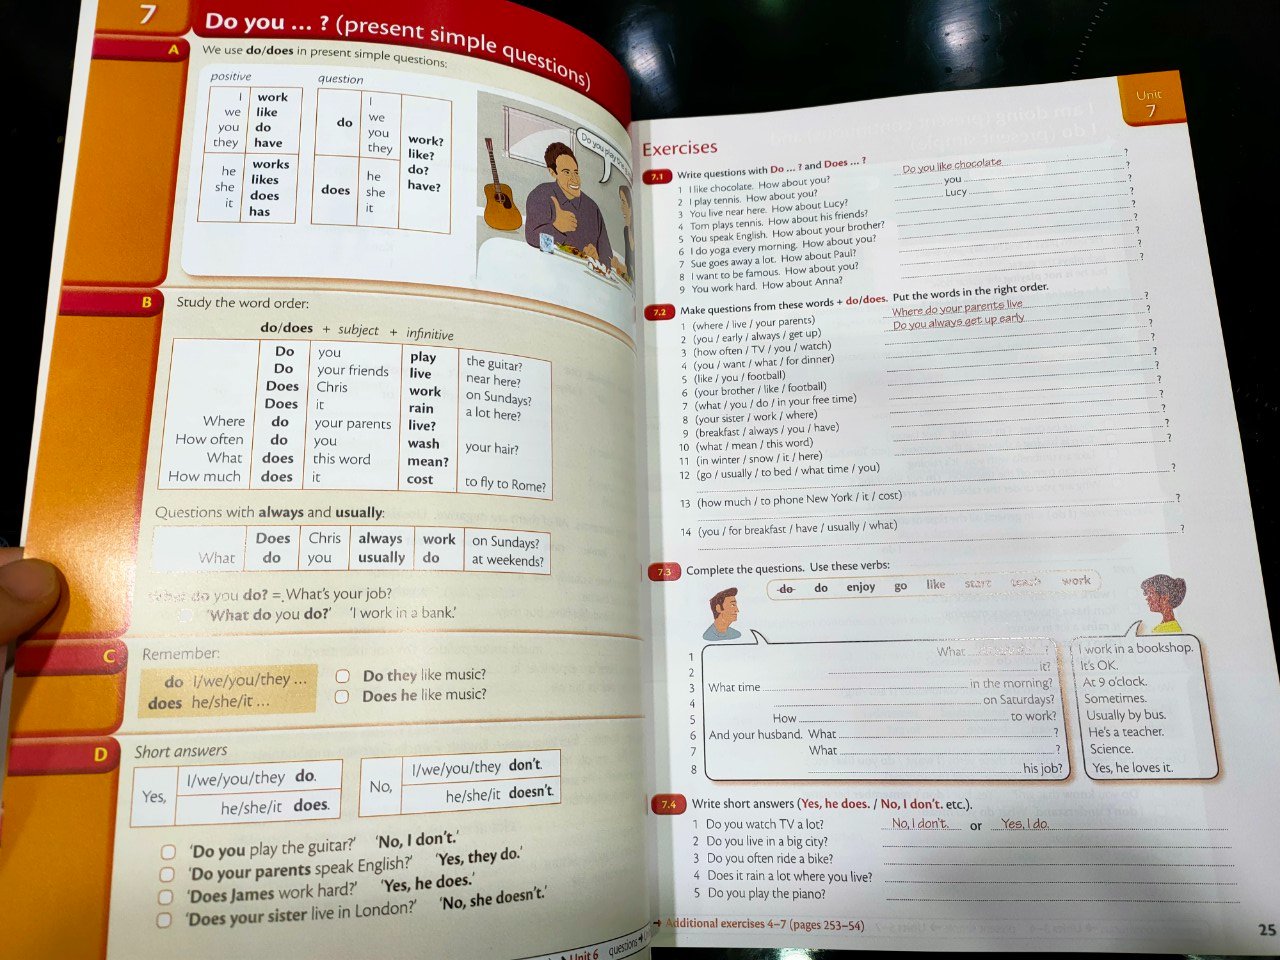 7
Do you ... ? (present simple questions)
A
We use do/does in present simple questions:
positive question
I work
we like
you do
they have
he works
she likes
it does
has
do I
we
you
they
does he
she
it
work?
like?
do?
have?
Do you play the
B
Study the word order:
do/does + subject + infinitive
Do you play the guitar?
Do your friends live near here?
Does Chris work on Sundays?
Does it rain a lot here?
Where do your parents live?
How often do you wash your hair?
What does this word mean?
How much does it cost to fly to Rome?
Questions with always and usually:
Does Chris always work on Sundays?
What do you usually do at weekends?
What do you do? = What's your job?
'What do you do?' 'I work in a bank.'
C
Remember:
do I/we/you/they ...
does he/she/it ...
Do they like music?
Does he like music?
D
Short answers
Yes, I/we/you/they do.
he/she/it does.
No, I/we/you/they don't.
he/she/it doesn't.
'Do you play the guitar?' 'No, I don't.'
'Do your parents speak English?' 'Yes, they do.'
'Does James work hard?' 'Yes, he does.'
'Does your sister live in London?' 'No, she doesn't.'
Unit 6
questions
Unit
7
Exercises
7.1 Write questions with Do ... ? and Does ... ?
1 I like chocolate. How about you? Do you like chocolate ?
2 I play tennis. How about you? you ?
3 You live near here. How about Lucy? Lucy ?
4 Tom plays tennis. How about his friends? ?
5 You speak English. How about your brother? ?
6 I do yoga every morning. How about you? ?
7 Sue goes away a lot. How about Paul? ?
8 I want to be famous. How about you? ?
9 You work hard. How about Anna? ?
7.2 Make questions from these words + do/does. Put the words in the right order.
1 (where / live / your parents) Where do your parents live ?
2 (you / early / always / get up) Do you always get up early ?
3 (how often / TV / you / watch) ?
4 (you / want / what / for dinner) ?
5 (like / you / football) ?
6 (your brother / like / football) ?
7 (what / you / do / in your free time) ?
8 (your sister / work / where) ?
9 (breakfast / always / you / have) ?
10 (what / mean / this word) ?
11 (in winter / snow / it / here) ?
12 (go / usually / to bed / what time / you)
?
13 (how much / to phone New York / it / cost)
?
14 (you / for breakfast / have / usually / what)
?
7.3 Complete the questions. Use these verbs:
do do enjoy go like start teach work
1 What ? I work in a bookshop.
2 it? It's OK.
3 What time in the morning? At 9 o'clock.
4 on Saturdays? Sometimes.
5 How to work? Usually by bus.
6 And your husband. What ? He's a teacher.
7 What ? Science.
8 his job? Yes, he loves it.
7.4 Write short answers (Yes, he does. / No, I don't. etc.).
1 Do you watch TV a lot? No, I don't. or Yes, I do.
2 Do you live in a big city?
3 Do you often ride a bike?
4 Does it rain a lot where you live?
5 Do you play the piano?
Additional exercises 4–7 (pages 253–54)
25